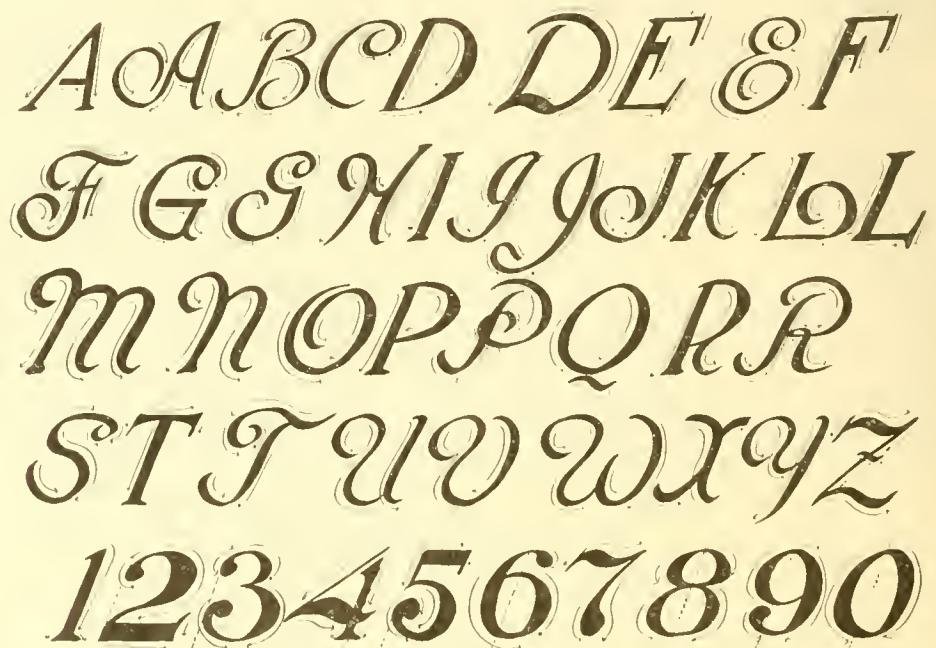 A A B C D D E E F
F G G H I I J J K L L
M N O P P Q R R
S T T U V W X Y Z
1 2 3 4 5 6 7 8 9 0